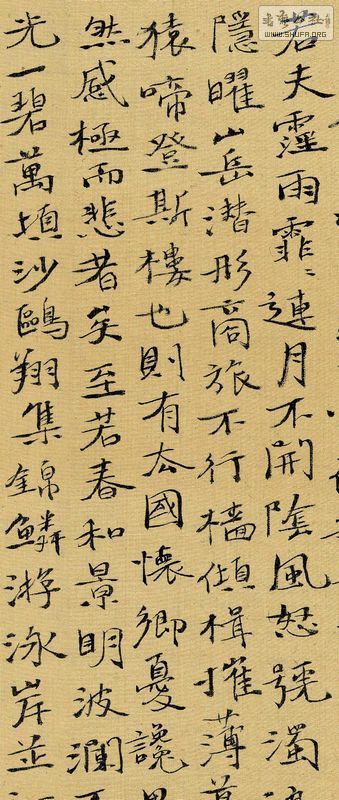 WWW.SHUFA.ORG
若夫霪雨霏〻連月不開陰風怒號濁
隱曜山岳潛形商旅不行檣傾楫摧薄
猿啼登斯樓也則有去國懷鄉憂讒
然感極而悲者矣至若春和景明波瀾不
光一碧萬頃沙鷗翔集錦鱗游泳岸芷